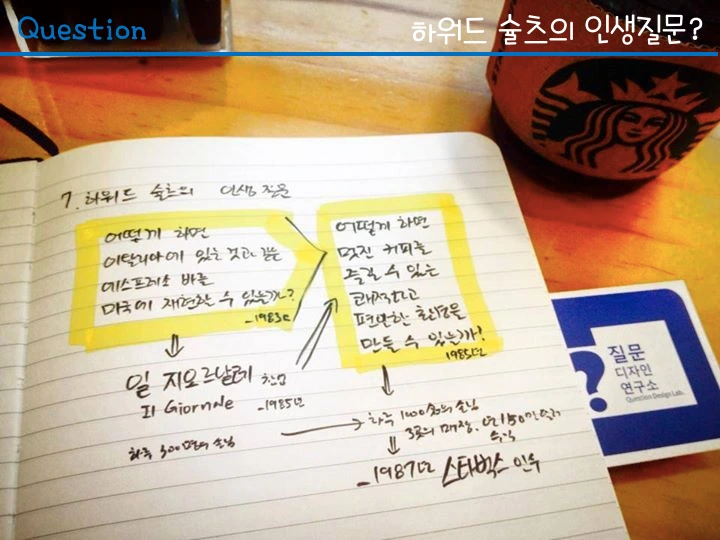 Question
하워드 슐츠의 인생질문?
7. 하워드 슐츠의 인생질문
어떻게 하면
이탈리아에 있는 것과 같은
에스프레소 바를
미국에 재현할 수 있는가?
-1983년
어떻게 하면
멋진 커피를
즐길 수 있는
쾌적하고
편안한 환경을
만들 수 있는가!
1985년
일 지오르날레 창업
Il Giornale -1985년
하루 300명의 손님
하루 1000명의 손님
3곳의 매장, 연 150만 달러
수익
-1987년 스타벅스 인수
질문
디자인
연구소
Question Design Lab.